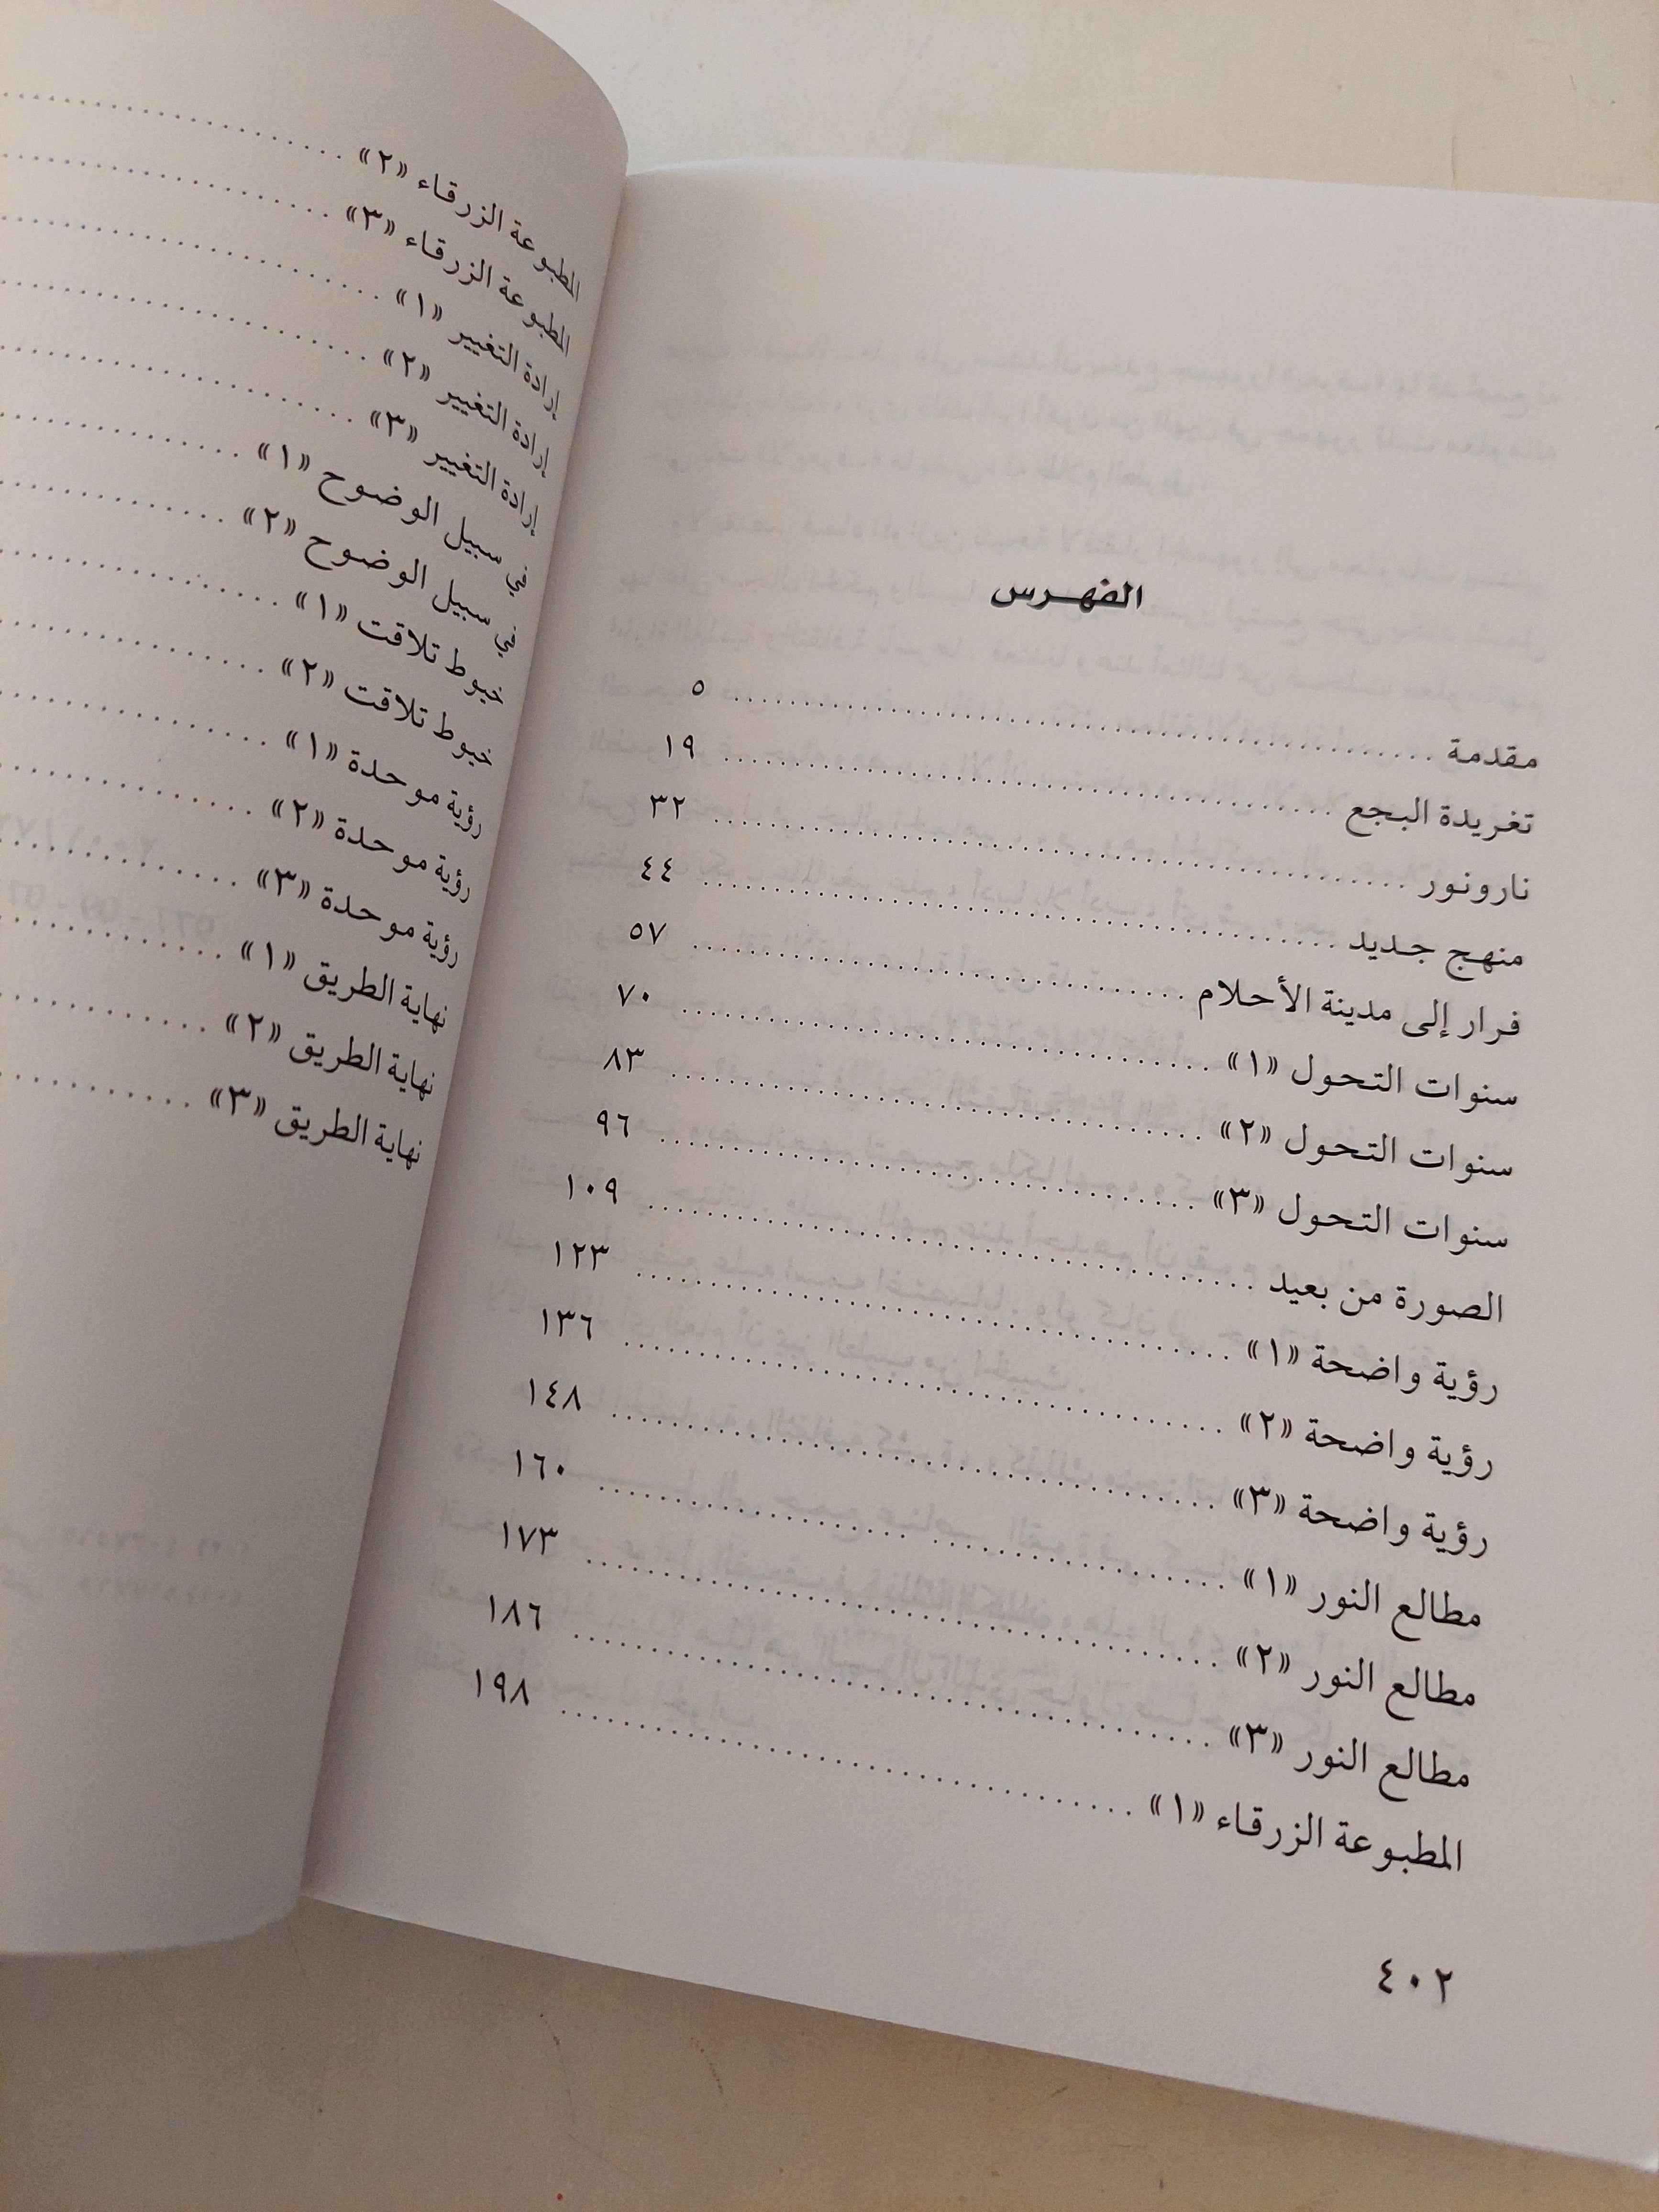 الفهرس
مقدمة ........ ٥
تغريدة البجع ........ ١٩
نارونور ........ ٣٢
منهج جديد ........ ٤٤
فرار إلى مدينة الأحلام ........ ٥٧
سنوات التحول «١» ........ ٧٠
سنوات التحول «٢» ........ ٨٣
سنوات التحول «٣» ........ ٩٦
الصورة من بعيد ........ ١٠٩
رؤية واضحة «١» ........ ١٢٣
رؤية واضحة «٢» ........ ١٣٦
رؤية واضحة «٣» ........ ١٤٨
مطالع النور «١» ........ ١٦٠
مطالع النور «٢» ........ ١٧٣
مطالع النور «٣» ........ ١٨٦
المطبوعة الزرقاء «١» ........ ١٩٨
٤٠٢
المطبوعة الزرقاء «٢» ........
المطبوعة الزرقاء «٣» ........
إرادة التغيير «١» ........
إرادة التغيير «٢» ........
إرادة التغيير «٣» ........
في سبيل الوضوح «١» ........
في سبيل الوضوح «٢» ........
خيوط تلاقت «١» ........
خيوط تلاقت «٢» ........
رؤية موحدة «١» ........
رؤية موحدة «٢» ........
رؤية موحدة «٣» ........
نهاية الطريق «١» ........
نهاية الطريق «٢» ........
نهاية الطريق «٣» ........